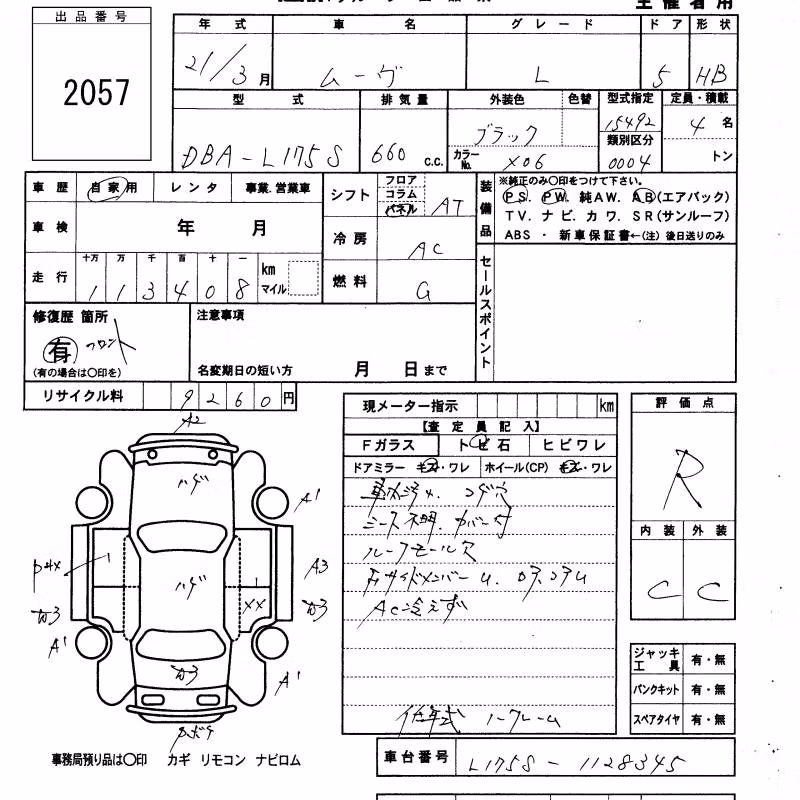 主催者用
出品番号
2057
年式 車名 グレード ドア 形状
21/3月 ムーヴ L 5 HB
型式 排気量 外装色 色替 型式指定 定員・積載
DBA-L175S 660 c.c. ブラック 15492 4名
カラーNo. X06 類別区分 0004 トン
車歴 自家用 レンタ 事業.営業車
車検 年 月
走行 十万 万 千 百 十 一 km マイル
1 1 3 4 0 8
シフト フロア コラム パネル AT
冷房 AC
燃料 G
装備品
※純正のみ〇印をつけて下さい。
PS. PW. 純AW. AB(エアバック)
TV. ナビ. カワ. SR(サンルーフ)
ABS ・ 新車保証書←(注) 後日送りのみ
セールスポイント
修復歴 箇所
有 フロント
(有の場合は〇印を)
注意事項
名変期日の短い方 月 日まで
リサイクル料 9260円
現メーター指示 km
【査定員記入】
Fガラス トビ石 ヒビワレ
ドアミラー キズ・ワレ ホイール(CP) キズ・ワレ
コゲ穴
シート不明. カバー付
ルーフモール穴
Ac冷えず
低年式 ノークレーム
評価点
R
内装 外装
C C
ジャッキ工具 有・無
パンクキット 有・無
スペアタイヤ 有・無
A2
ハゲ
A1
A3
ハゲ
XX
カ3
A1
カ3
A1
カ3
事務局預り品は〇印 カギ リモコン ナビロム
車台番号 L175S-1128345